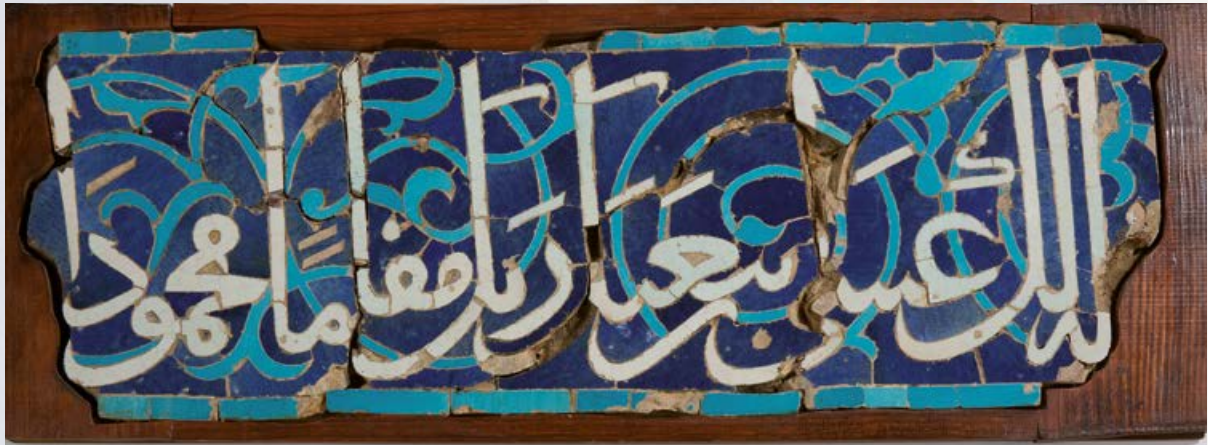 لة لك عسى ان يبعثك ربك مقامًا محمودًا